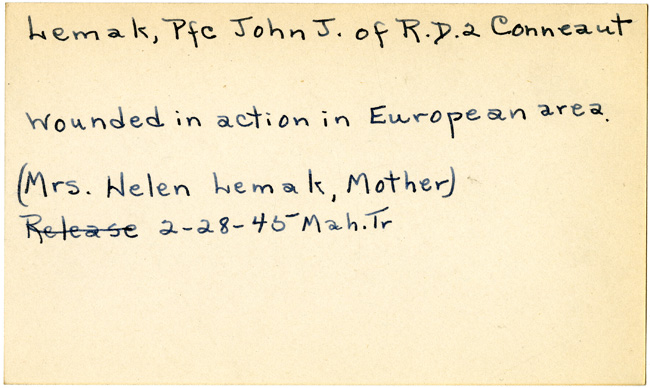 Lemak, Pfc John J. of R.D.2 Conneaut
Wounded in action in European area.
(Mrs. Helen Lemak, Mother)
Release 2-28-45 Mah.Tr